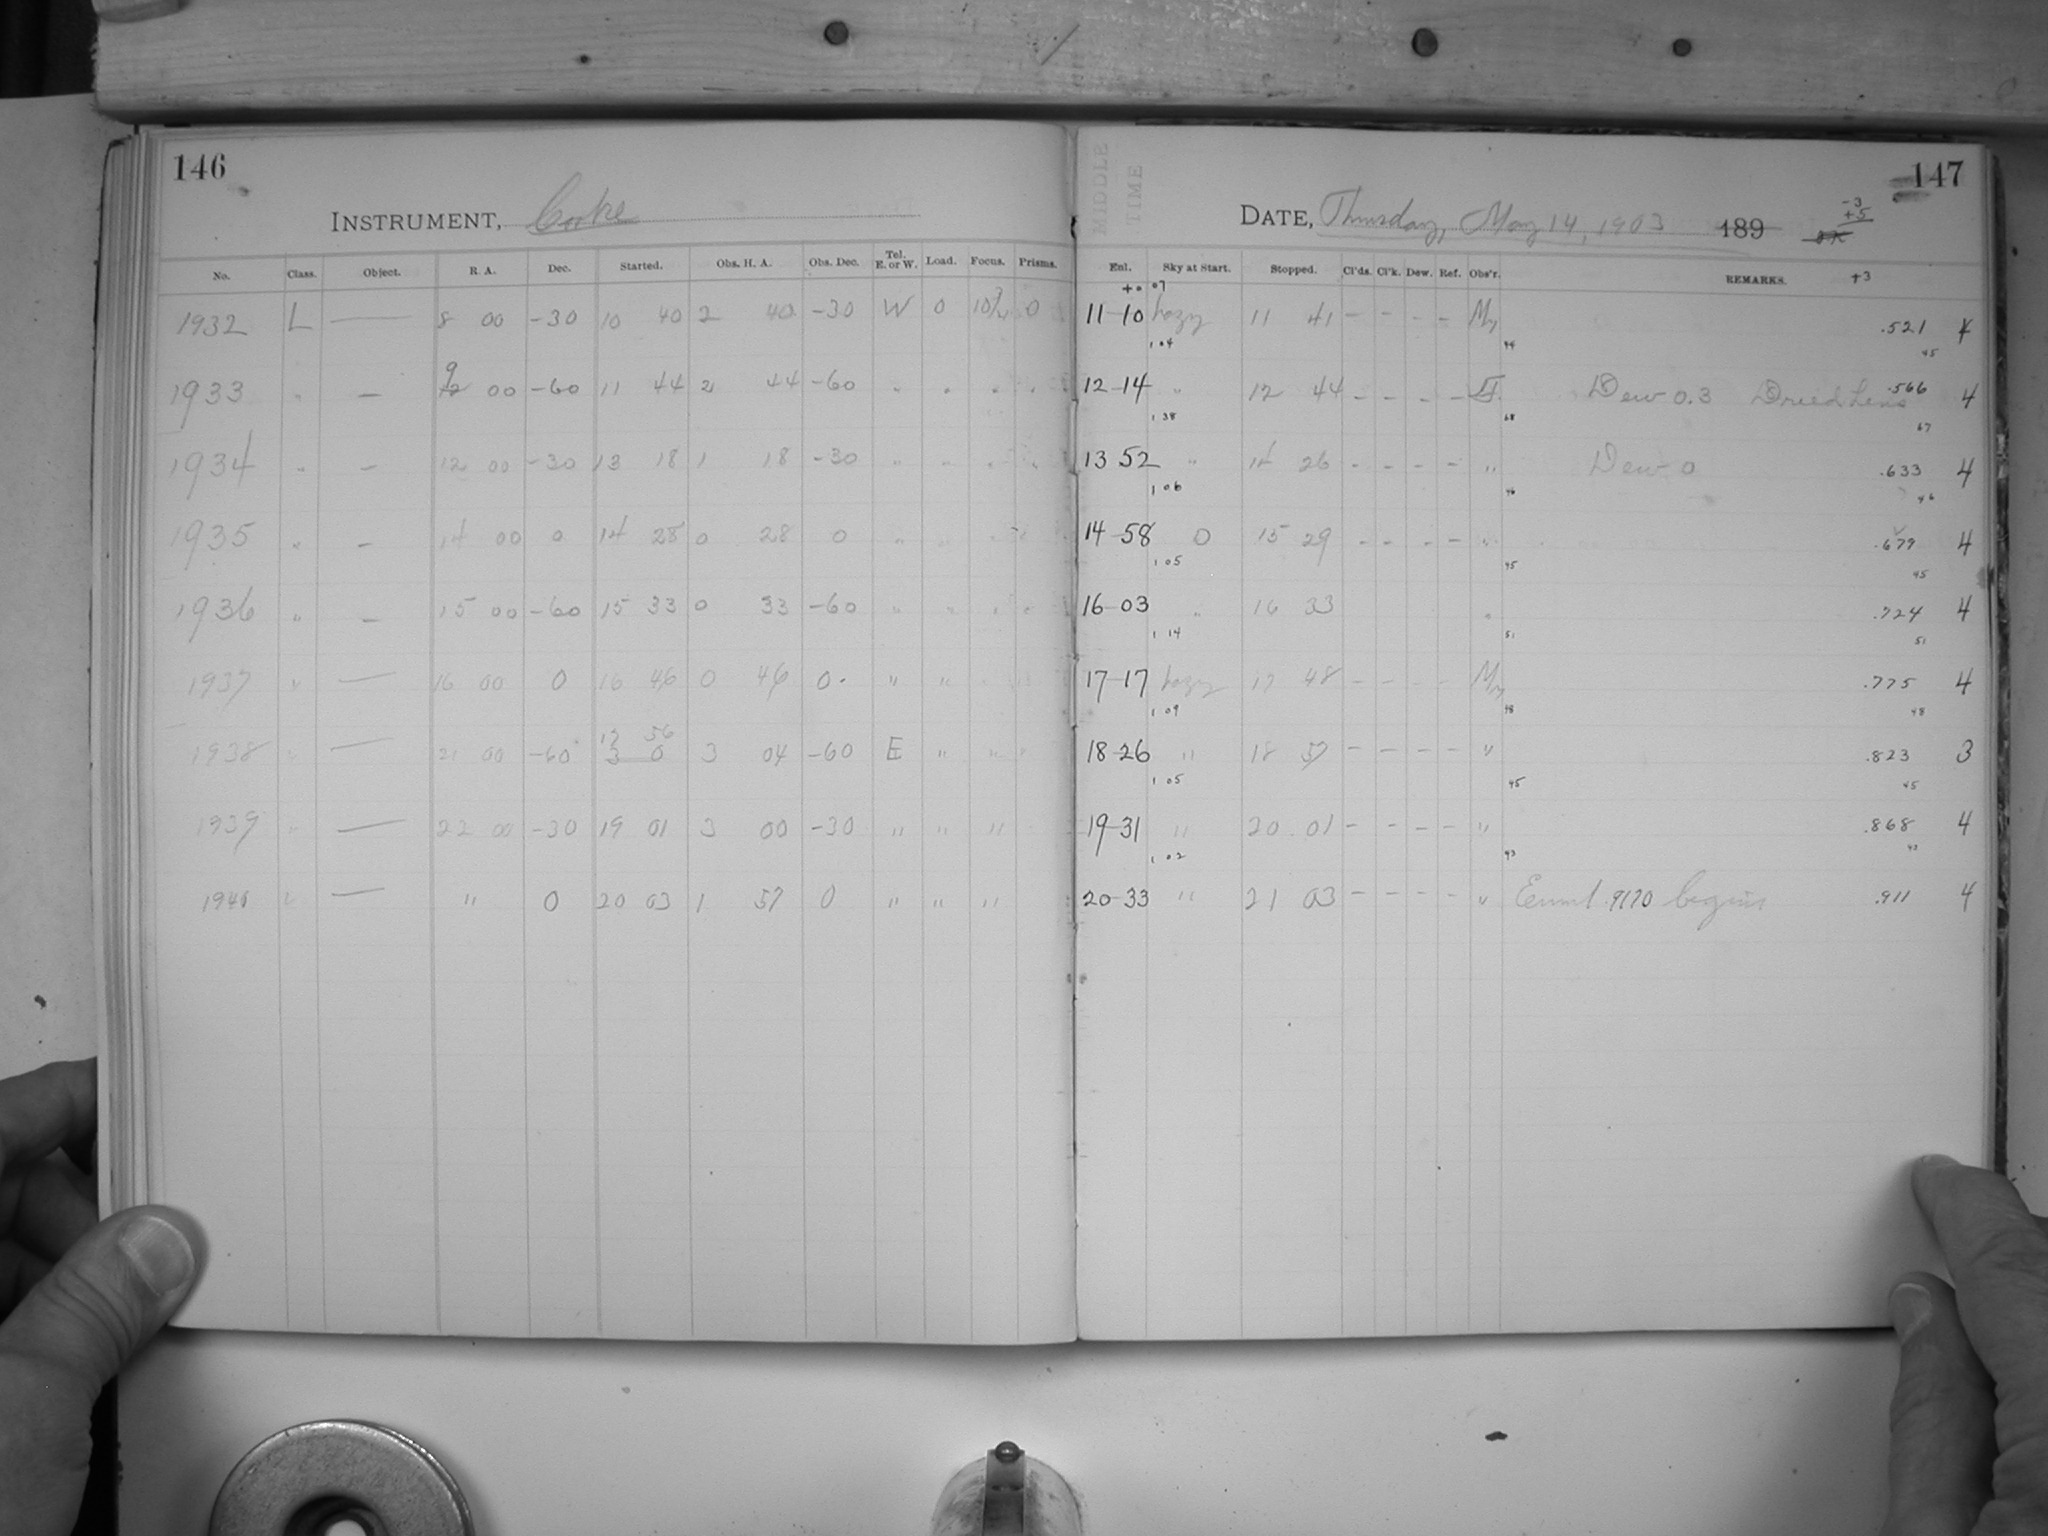 146
INSTRUMENT, Cooke
No. Class. Object. R. A. Dec. Started. Obs. H. A. Obs. Dec. Tel. E. or W. Load. Focus. Prisms.
1932 L — 8 00 -30 10 40 2 40 -30 W 0 0
1933 " — 9 00 -60 11 44 2 44 -60 " " " "
1934 " — 12 00 -30 13 18 1 18 -30 " " " "
1935 " — 14 00 0 14 28 0 28 0 " " " "
1936 " — 15 00 -60 15 33 0 33 -60 " " " "
1937 " — 16 00 0 16 46 0 46 0 " " "
17 56
1938 " — 21 00 -60 3 0 3 04 -60 E " " "
1939 " — 22 00 -30 19 01 3 00 -30 " " "
1940 " — " 0 20 03 1 57 0 " " "
MIDDLE TIME
147
DATE, Thursday, May 14, 1903 189
-3
+5
Enl. Sky at Start. Stopped. Cl'ds. Cl'k. Dew. Ref. Obs'r. REMARKS. +3
+0 07
11-10 hazy 11 41 - - - - .521 4
1 04 44 45
12-14 " 12 44 - - - - Dew 0.3 Dried Lens .566 4
1 38 68 67
13 52 " 14 26 - - - - " Dew 0 .633 4
1 06 46 46
14-58 0 15 29 - - - - " .679 4
1 05 45 45
16-03 " 16 33 " .724 4
1 14 51 51
17-17 hazy 17 48 - - - - .775 4
1 09 48 48
18-26 " 18 57 - - - - " .823 3
1 05 45 45
19-31 " 20 01 - - - - " .868 4
1 02 43 43
20-33 " 21 03 - - - - " 9170 begins .911 4